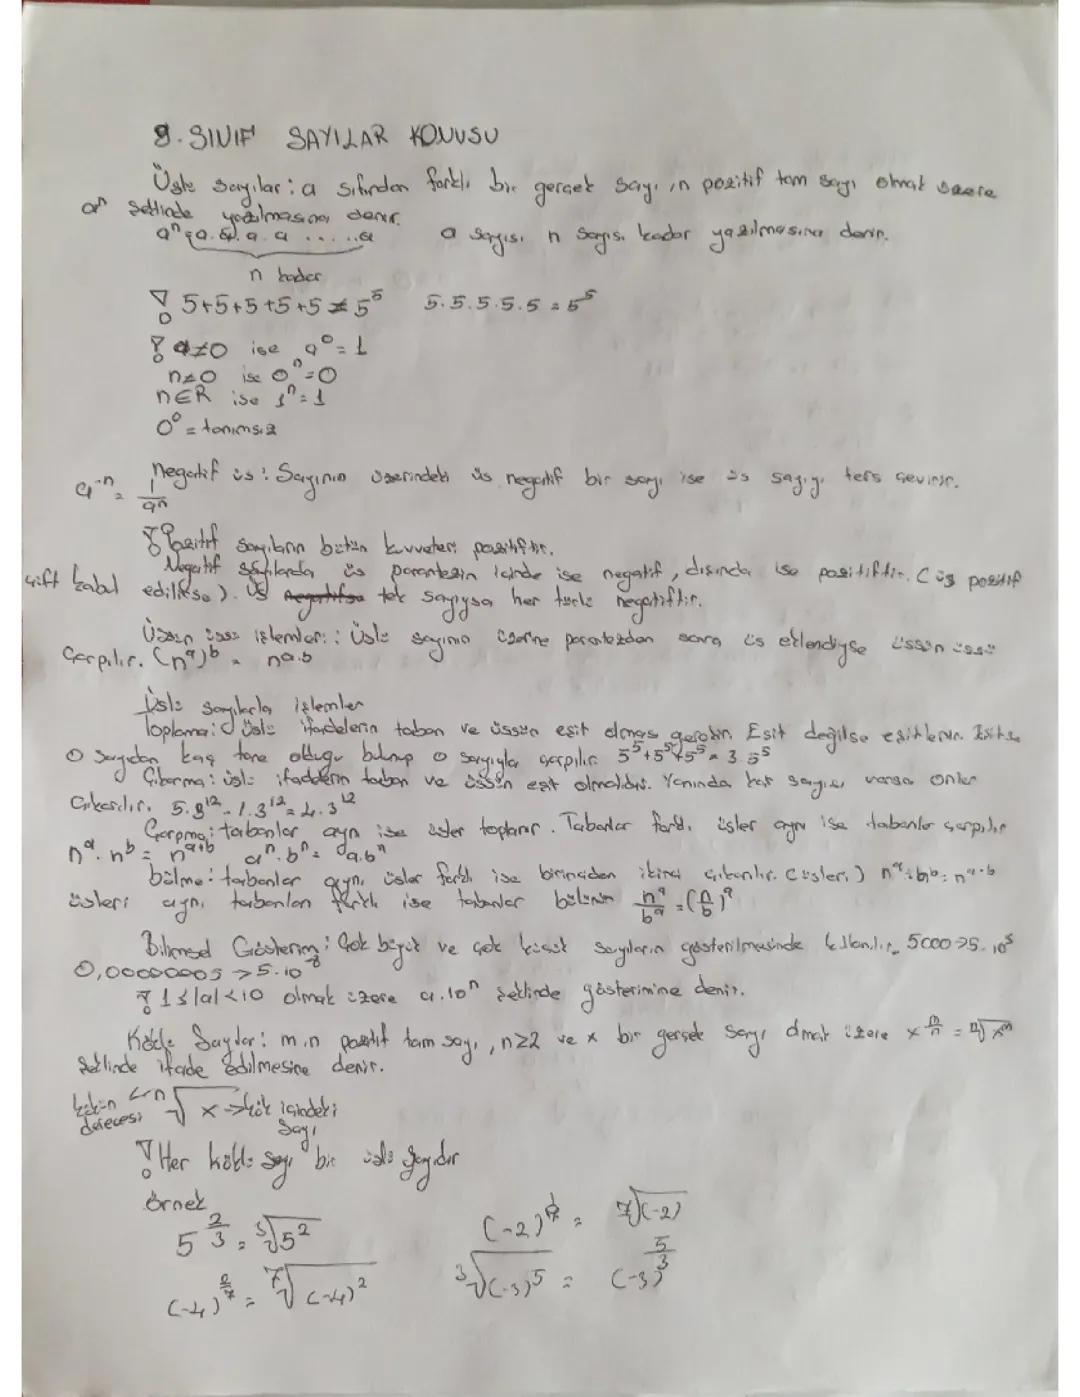 9.SINIF SAYILAR KONUSU
Üslü Sayılar: a sıfırdan farklı bir gerçek sayı, n pozitif tam sayı olmak üzere
aⁿ şeklinde yazılmasına denir.
aⁿ = a. a. a. a ..... a a sayısı n sayısı kadar yazılmasına denir.
n kadar
! 5+5+5+5+5 ≠ 5⁵ 5.5.5.5.5 = 5⁵
! a≠0 ise a⁰=1
n≠0 ise 0ⁿ=0
n∈R ise 1ⁿ=1
0⁰ = tanımsız
Negatif üs: Sayının üzerindeki üs negatif bir sayı ise üs sayıyı ters çevirir.
a⁻ⁿ = 1/aⁿ
! Pozitif sayıların bütün kuvvetleri pozitiftir.
Negatif sayılarda üs parantezin içinde ise negatif, dışında ise pozitiftir. (üs pozitif
çift kabul edilirse). Üs tek sayıysa her türlü negatiftir.
Üssün üssü işlemler: Üslü sayının üzerine parantezden sonra üs eklendiyse üssün üssü
çarpılır. (nᵃ)ᵇ = nᵃ·ᵇ
Üslü sayılarla işlemler
Toplama: Üslü ifadelerin taban ve üssün eşit olması gerekir. Eşit değilse eşitlenir.
o sayıdan kaç tane olduğu bulunup o sayıyla çarpılır. 5⁵+5⁵+5⁵ = 3.5⁵
Çıkarma: üslü ifadelerin taban ve üssün eşit olmalıdır. Yanında kat sayısı varsa onlar
Çıkarılır. 5.3¹²-1.3¹²=4.3¹²
Çarpma: tabanlar aynı ise üsler toplanır. Tabanlar farklı üsler aynı ise tabanlar çarpılır
nᵃ.nᵇ = nᵃ⁺ᵇ aⁿ.bⁿ = a.bⁿ
bölme: tabanlar aynı, üsler farklı ise birinciden ikinci çıkarılır. (üsler.) nᵃ÷nᵇ=nᵃ⁻ᵇ
üsleri aynı tabanları farklı ise tabanlar bölünür nᵃ/bᵃ = (n/b)ᵃ
Bilimsel Gösterim: Çok büyük ve çok küçük sayıların gösterilmesinde kullanılır. 5000→5.10³
0,00000005→5.10⁻⁸
! 1≤|a|<10 olmak üzere a.10ⁿ şeklinde gösterimine denir.
Köklü Sayılar: m.n pozitif tam sayı, n≥2 ve x bir gerçek sayı olmak üzere x^(m/n) = ⁿ√xᵐ
şeklinde ifade edilmesine denir.
kökün derecesi ← ⁿ√x → kök içindeki
Sayı
! Her köklü sayı bir üslü sayıdır
Örnek
5^(2/3) = ³√5² (-2)^(1/7) = ⁷√(-2)
(-4)^(2/7) = ⁷√(-4)² ³√(-3)⁵ = (-3)^(5/3)